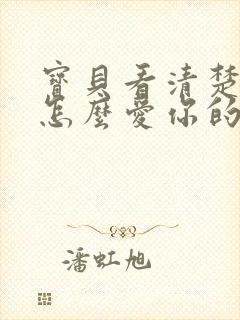 寶貝看清楚
怎麼愛你的
潘虹旭